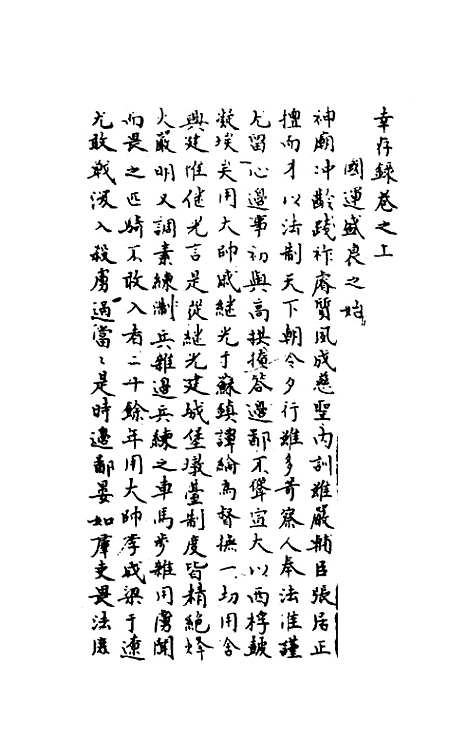 幸存錄卷之上
國運盛衰之始
神廟冲齡踐祚睿質夙成慈聖内訓雖嚴輔臣張居正
擅而才以法制天下朝令夕行雖多苛察人奉法惟謹
尤留心邊事初與高拱撫答邊鄙不聳宣大以西桴鼓
凝埃矣用大帥戚繼光于蘇鎮譚綸為督撫一切用舍
興建惟继光言是從継光建城堡墩臺制度皆精絶烽
火嚴明又調素練淛兵雜邊兵練之車馬步雜用虜聞
而畏之匹騎不敢入者二十餘年用大帥李成梁于遼
尤敢戰深入殺虜過當〻是時邊鄙晏如庫支畏法度